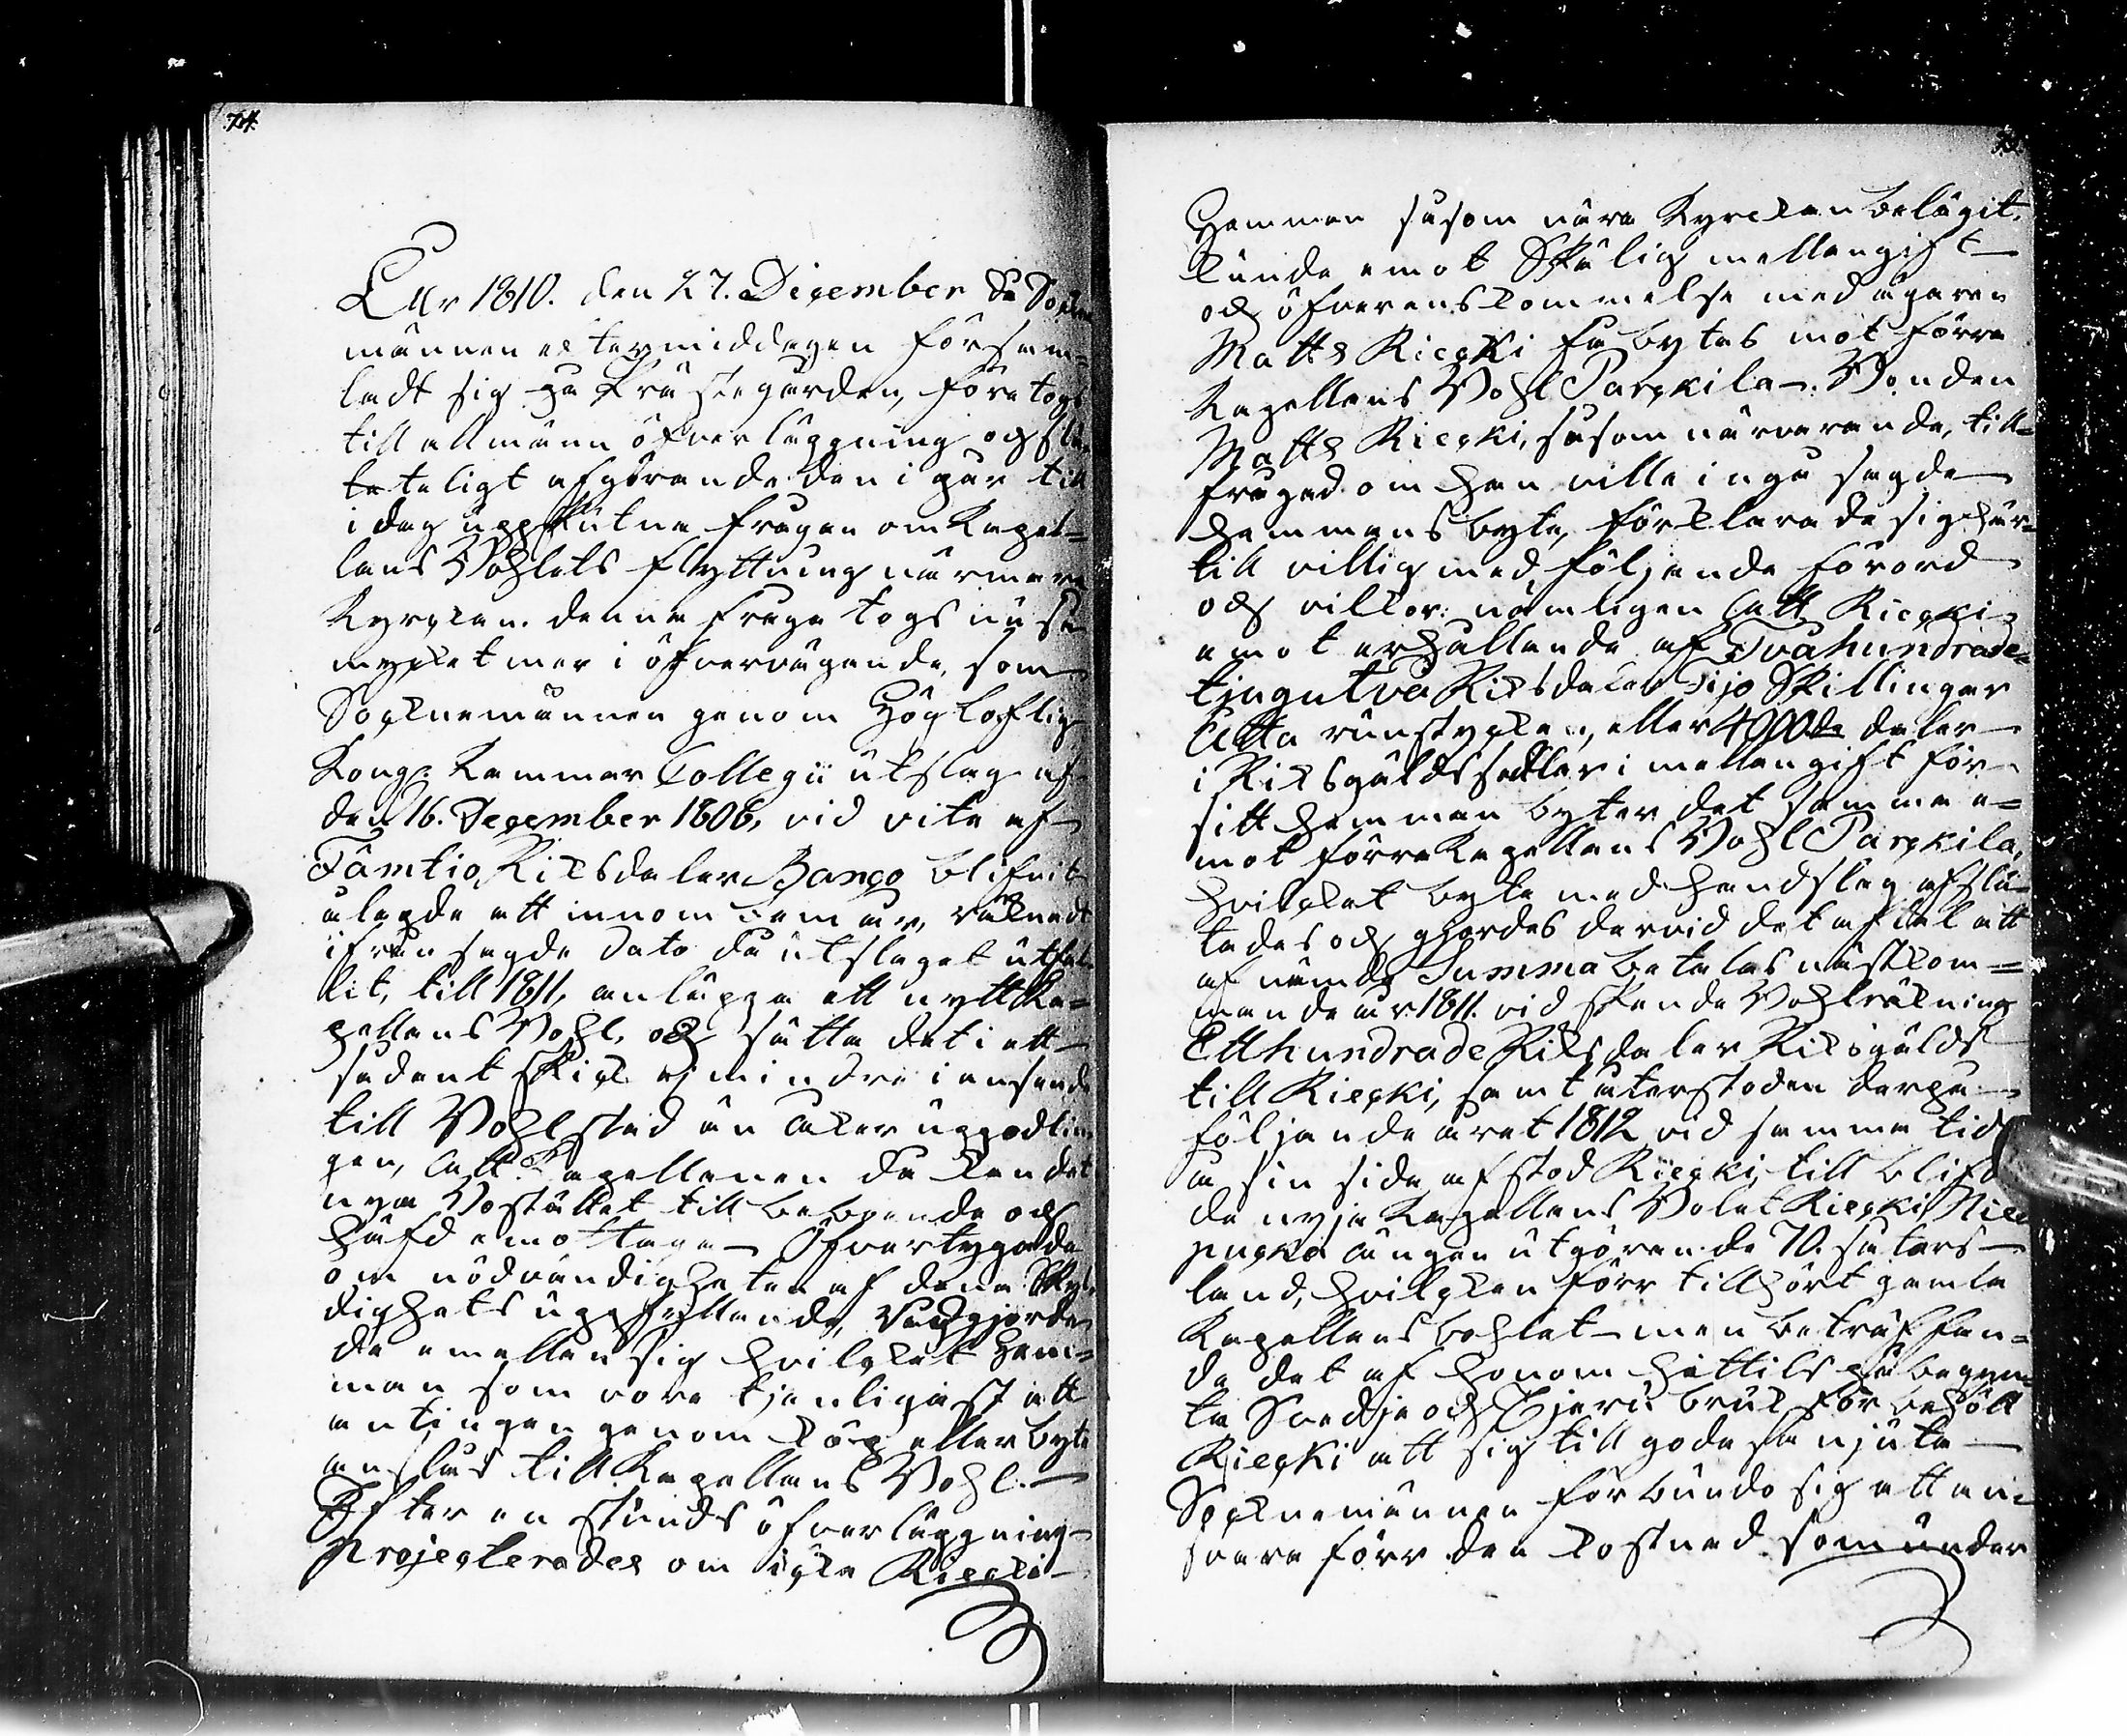 74.
År 1810. den 27. December då Sokne
männen eftermiddagen försam=
ladt sig på Prästegården, företogs
till allmänn öfverläggning och slu
teligt afgörande den i går till
i dag uppskutne frågan om Kapel=
lans Bohlets flyttning närmare
Kyrckan. denna fråga togs nu så
mycket mer i öfvervägande, som
Socknemännen genom Högloflig
Kongl. Kammar Collegii utslag af
den 16. December 1806, vid vite af
Fämtio Riksdaler Banco blifvit
ålagde att innom fem år, räknadt
ifrån sagde Dato då utslaget utfal=
lit, till 1811, anlägga ett nytt Ka=
pellans Bohl, och sätta det i ett
sådant skick ej mindre i anseende
till Bohlstad än Åker uppodlin
gen, att Kapellanen då kan det
nya Boställtet till beboende och
häfd emottaga. Öfvertygade
om nödvändigheten af denna Skyl
dighets uppfyllande, rådgjorde
de emellan sig hvilcket Hem=
man som vore tjenligast att
antingen genom köp eller byte
anslås till Kapellans Bohl.
Efter en stunds öfverläggning
projecterades om icke Riecki
75.
Hemman såsom nära Kyrckan belägit,
kunde emot Skälig mellangift
och öfverenskommelse med ägaren
Matts Riecki få bytas mot förra
Kapellans Bohl Parckila. Bonden
Matts Riecki, såsom närvarande, till=
frågad om han ville ingå sagde
hemmans byte, förklarade sig här=
till villig med följande förord
och villkor: nämligen att Riecki
emot erhållande af Tvåhundrade=
tjugutvå Riksdaler Tijo Skillingar
Åtta runstycken, eller 4000de daler
i Riksgäldssedlar i mellangift för
sitt hemman byter det samma e=
mot förra Kapellans Bohl Parckila,
hvilcket byte med handslag afslu=
tades och gjordes dervid det aftal att
af nämde Summa betalas nästkom=
mande år 1811. vid skende Bohlräkning
Etthundrade Riksdaler Riksgälds
till Riecki, samt återstoden derpå
följande året 1812 vid samma tid
å sin sida afstod Riecki till blifvan
de nyja Kapellans Bolet Riecki Nie
pucka ängen utgörande 70. såtars
land, hvilcken förr tillhört gamla
Kapellans bohlet men beträffan=
de det af honom hittils påbegyn
ta Svedje och Tjäru bruk förbehölt
Riecki att sig till godo få njuta
Socknemännen förbundo sig att an=
svara förr den kostnad som under